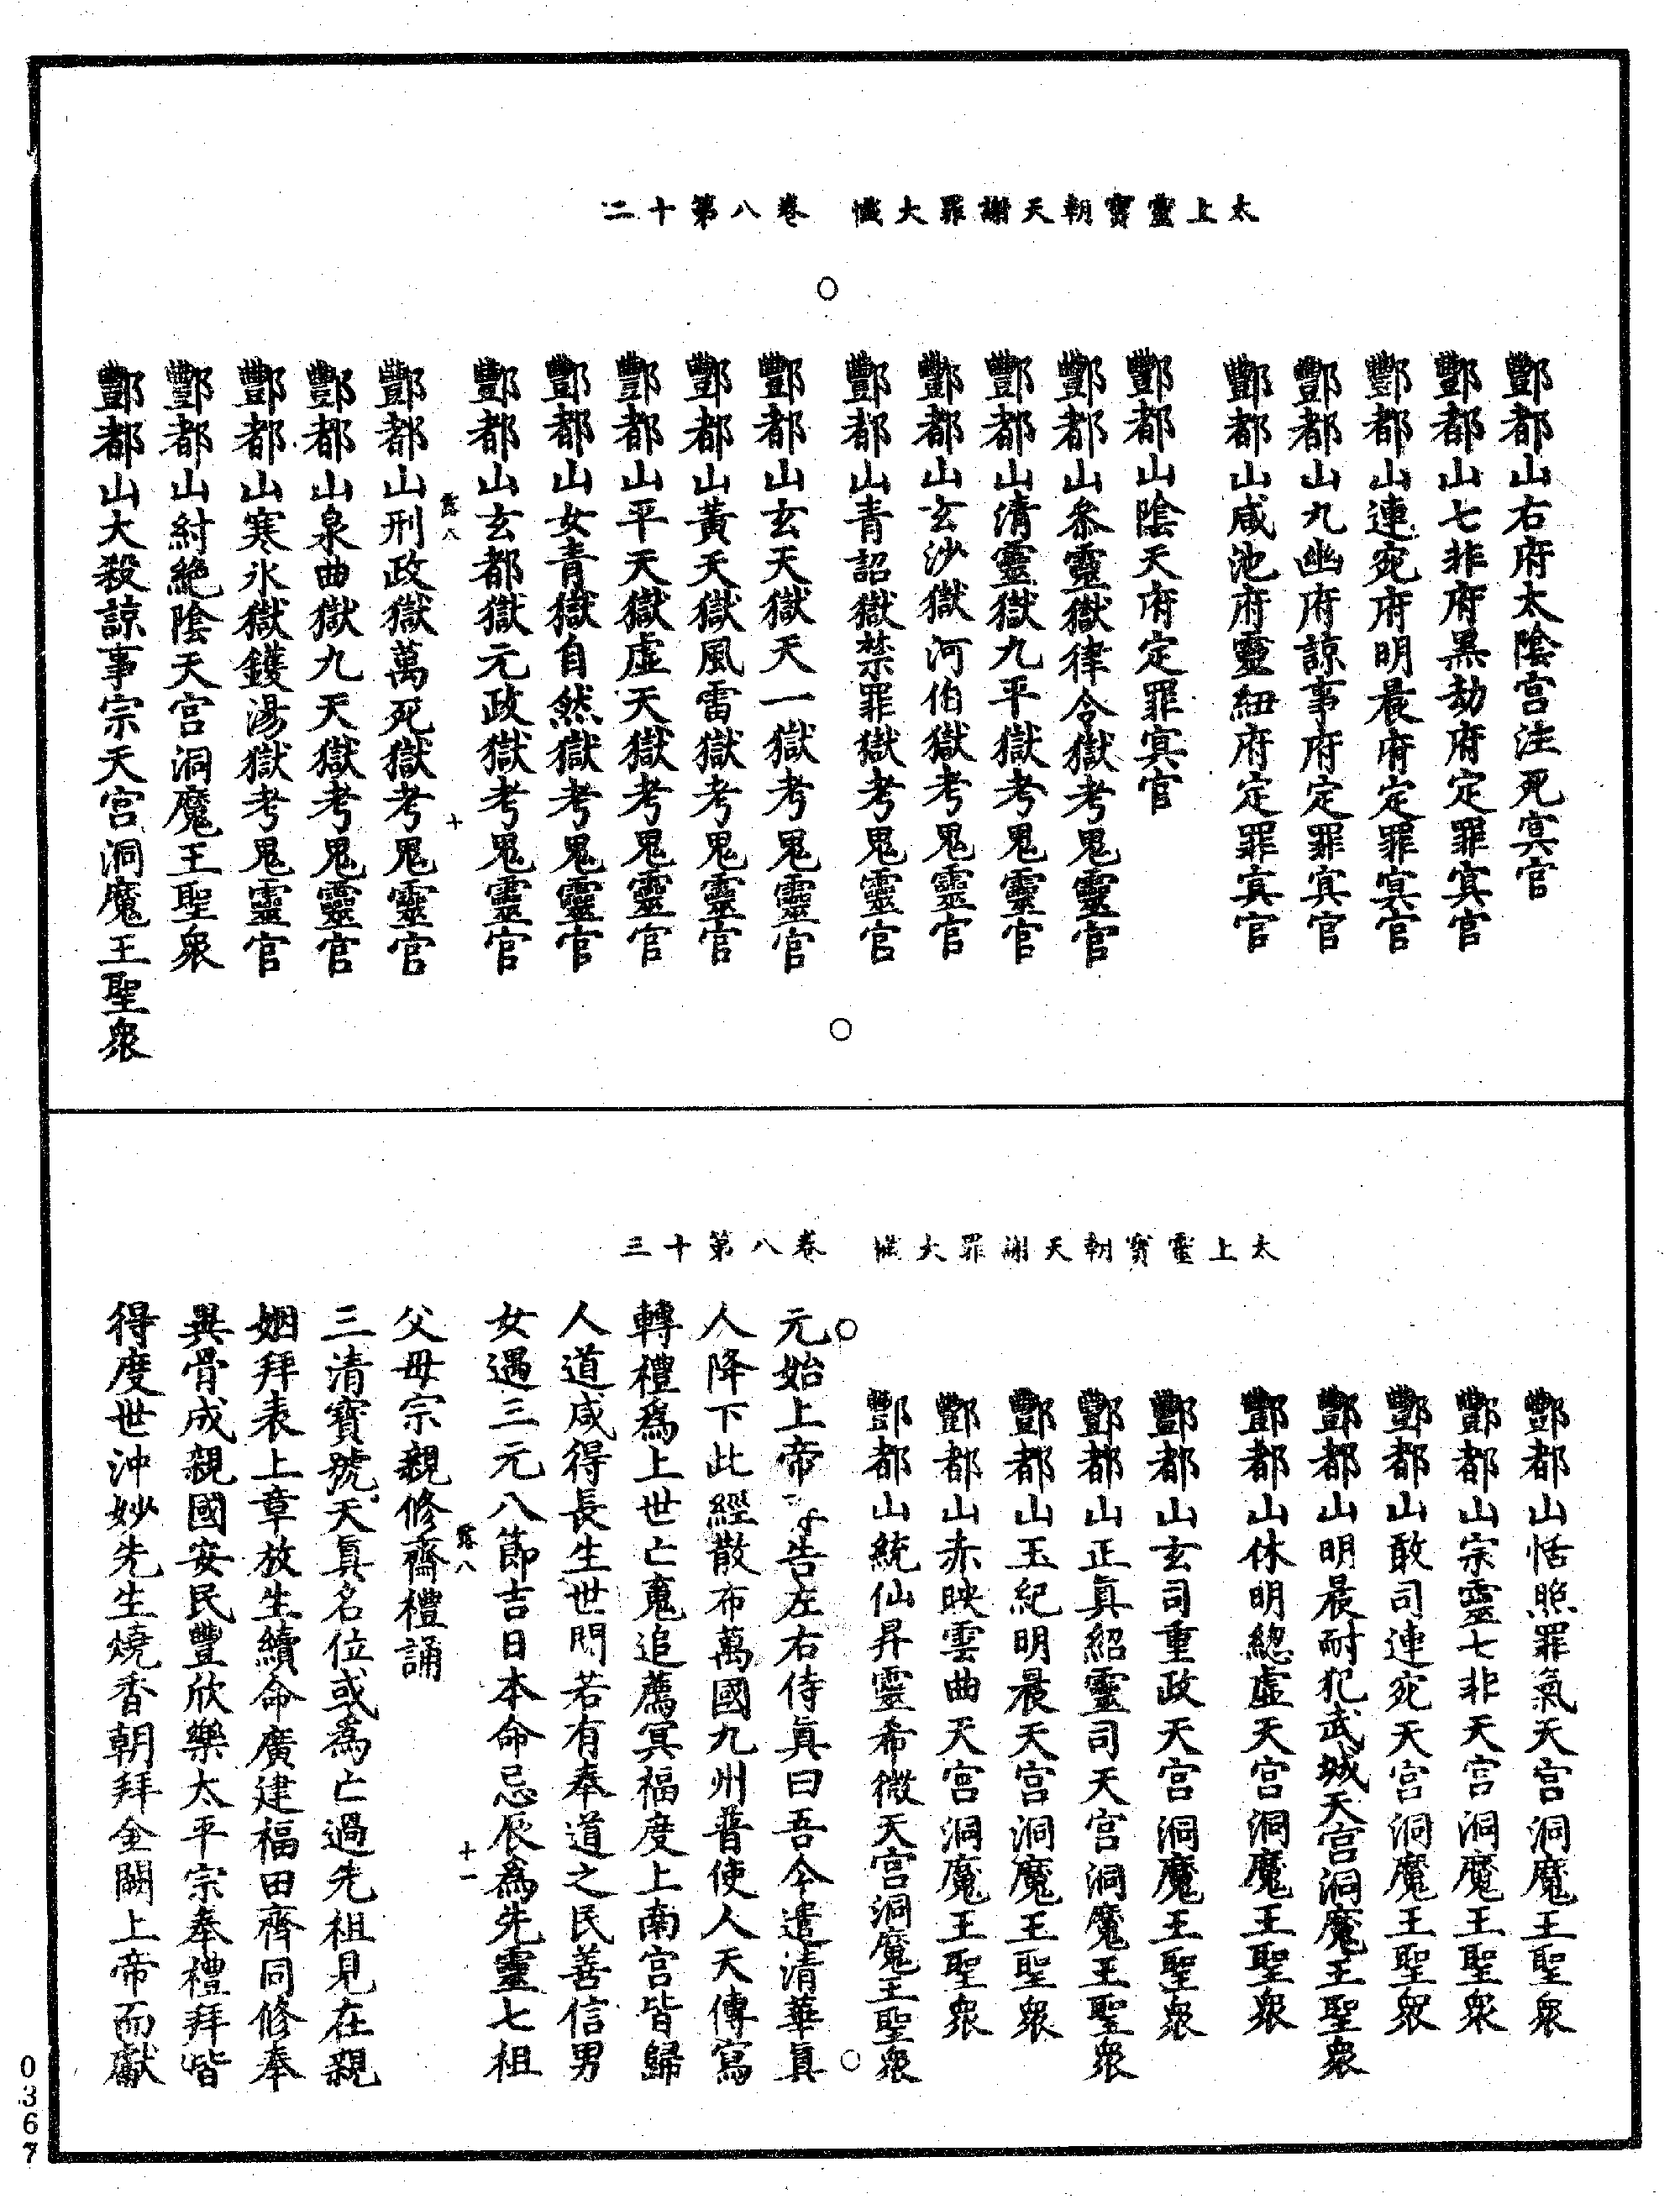 太上靈寶朝天謝罪大懺　卷八第十二
酆都山右府太陰宮注死㝠官
酆都山七非府黑劫府定罪㝠官
酆都山連宛府明晨府定罪㝠官
酆都山九幽府諒事府定罪㝠官
酆都山咸池府靈紐府定罪㝠官
酆都山陰天府定罪㝠官
酆都山叅靈獄律令獄考鬼靈官
酆都山清靈獄九平獄考鬼靈官
酆都山玄沙獄河伯獄考鬼靈官
酆都山青詔獄禁罪獄考鬼靈官
酆都山玄天獄天一獄考鬼靈官
酆都山黃天獄風雷獄考鬼靈官
酆都山平天獄虛天獄考鬼靈官
酆都山女青獄自然獄考鬼靈官
酆都山玄都獄元政獄考鬼靈官
露八　十
酆都山刑政獄萬死獄考鬼靈官
酆都山泉曲獄九天獄考鬼靈官
酆都山寒氷獄鑊湯獄考鬼靈官
酆都山紂絶陰天宮洞魔王聖衆
酆都山大殺諒事宗天宮洞魔王聖衆
太上靈寶朝天謝罪大懺　卷八第十三
酆都山恬照罪氣天宮洞魔王聖衆
酆都山宗靈七非天宮洞魔王聖衆
酆都山敢司連宛天宮洞魔王聖衆
酆都山明晨耐犯武城天宮洞魔王聖衆
酆都山休明緫虛天宮洞魔王聖衆
酆都山玄司重政天宮洞魔王聖衆
酆都山正眞紹靈司天宮洞魔王聖衆
酆都山玉紀明晨天宮洞魔王聖衆
酆都山赤映雲曲天宮洞魔王聖衆
酆都山統仙昇靈希微天宮洞魔王聖衆
元始上帝告左右侍眞曰吾今遣清華眞
人降下此經散布萬國九州普使人天傳寫
轉禮爲上世亡䰟追薦冥福度上南宮皆歸
人道咸得長生世間若有奉道之民善信男
女遇三元八節吉日本命忌辰爲先靈七祖
露八　十一
父母宗親修齋禮誦
三清寶號天眞名位或爲亡過先祖見在親
姻拜表上章放生續命廣建福田齊同修奉
異骨成親國安民豐欣樂太平宗奉禮拜皆
得度世沖妙先生燒香朝拜金闕上帝而獻
0367